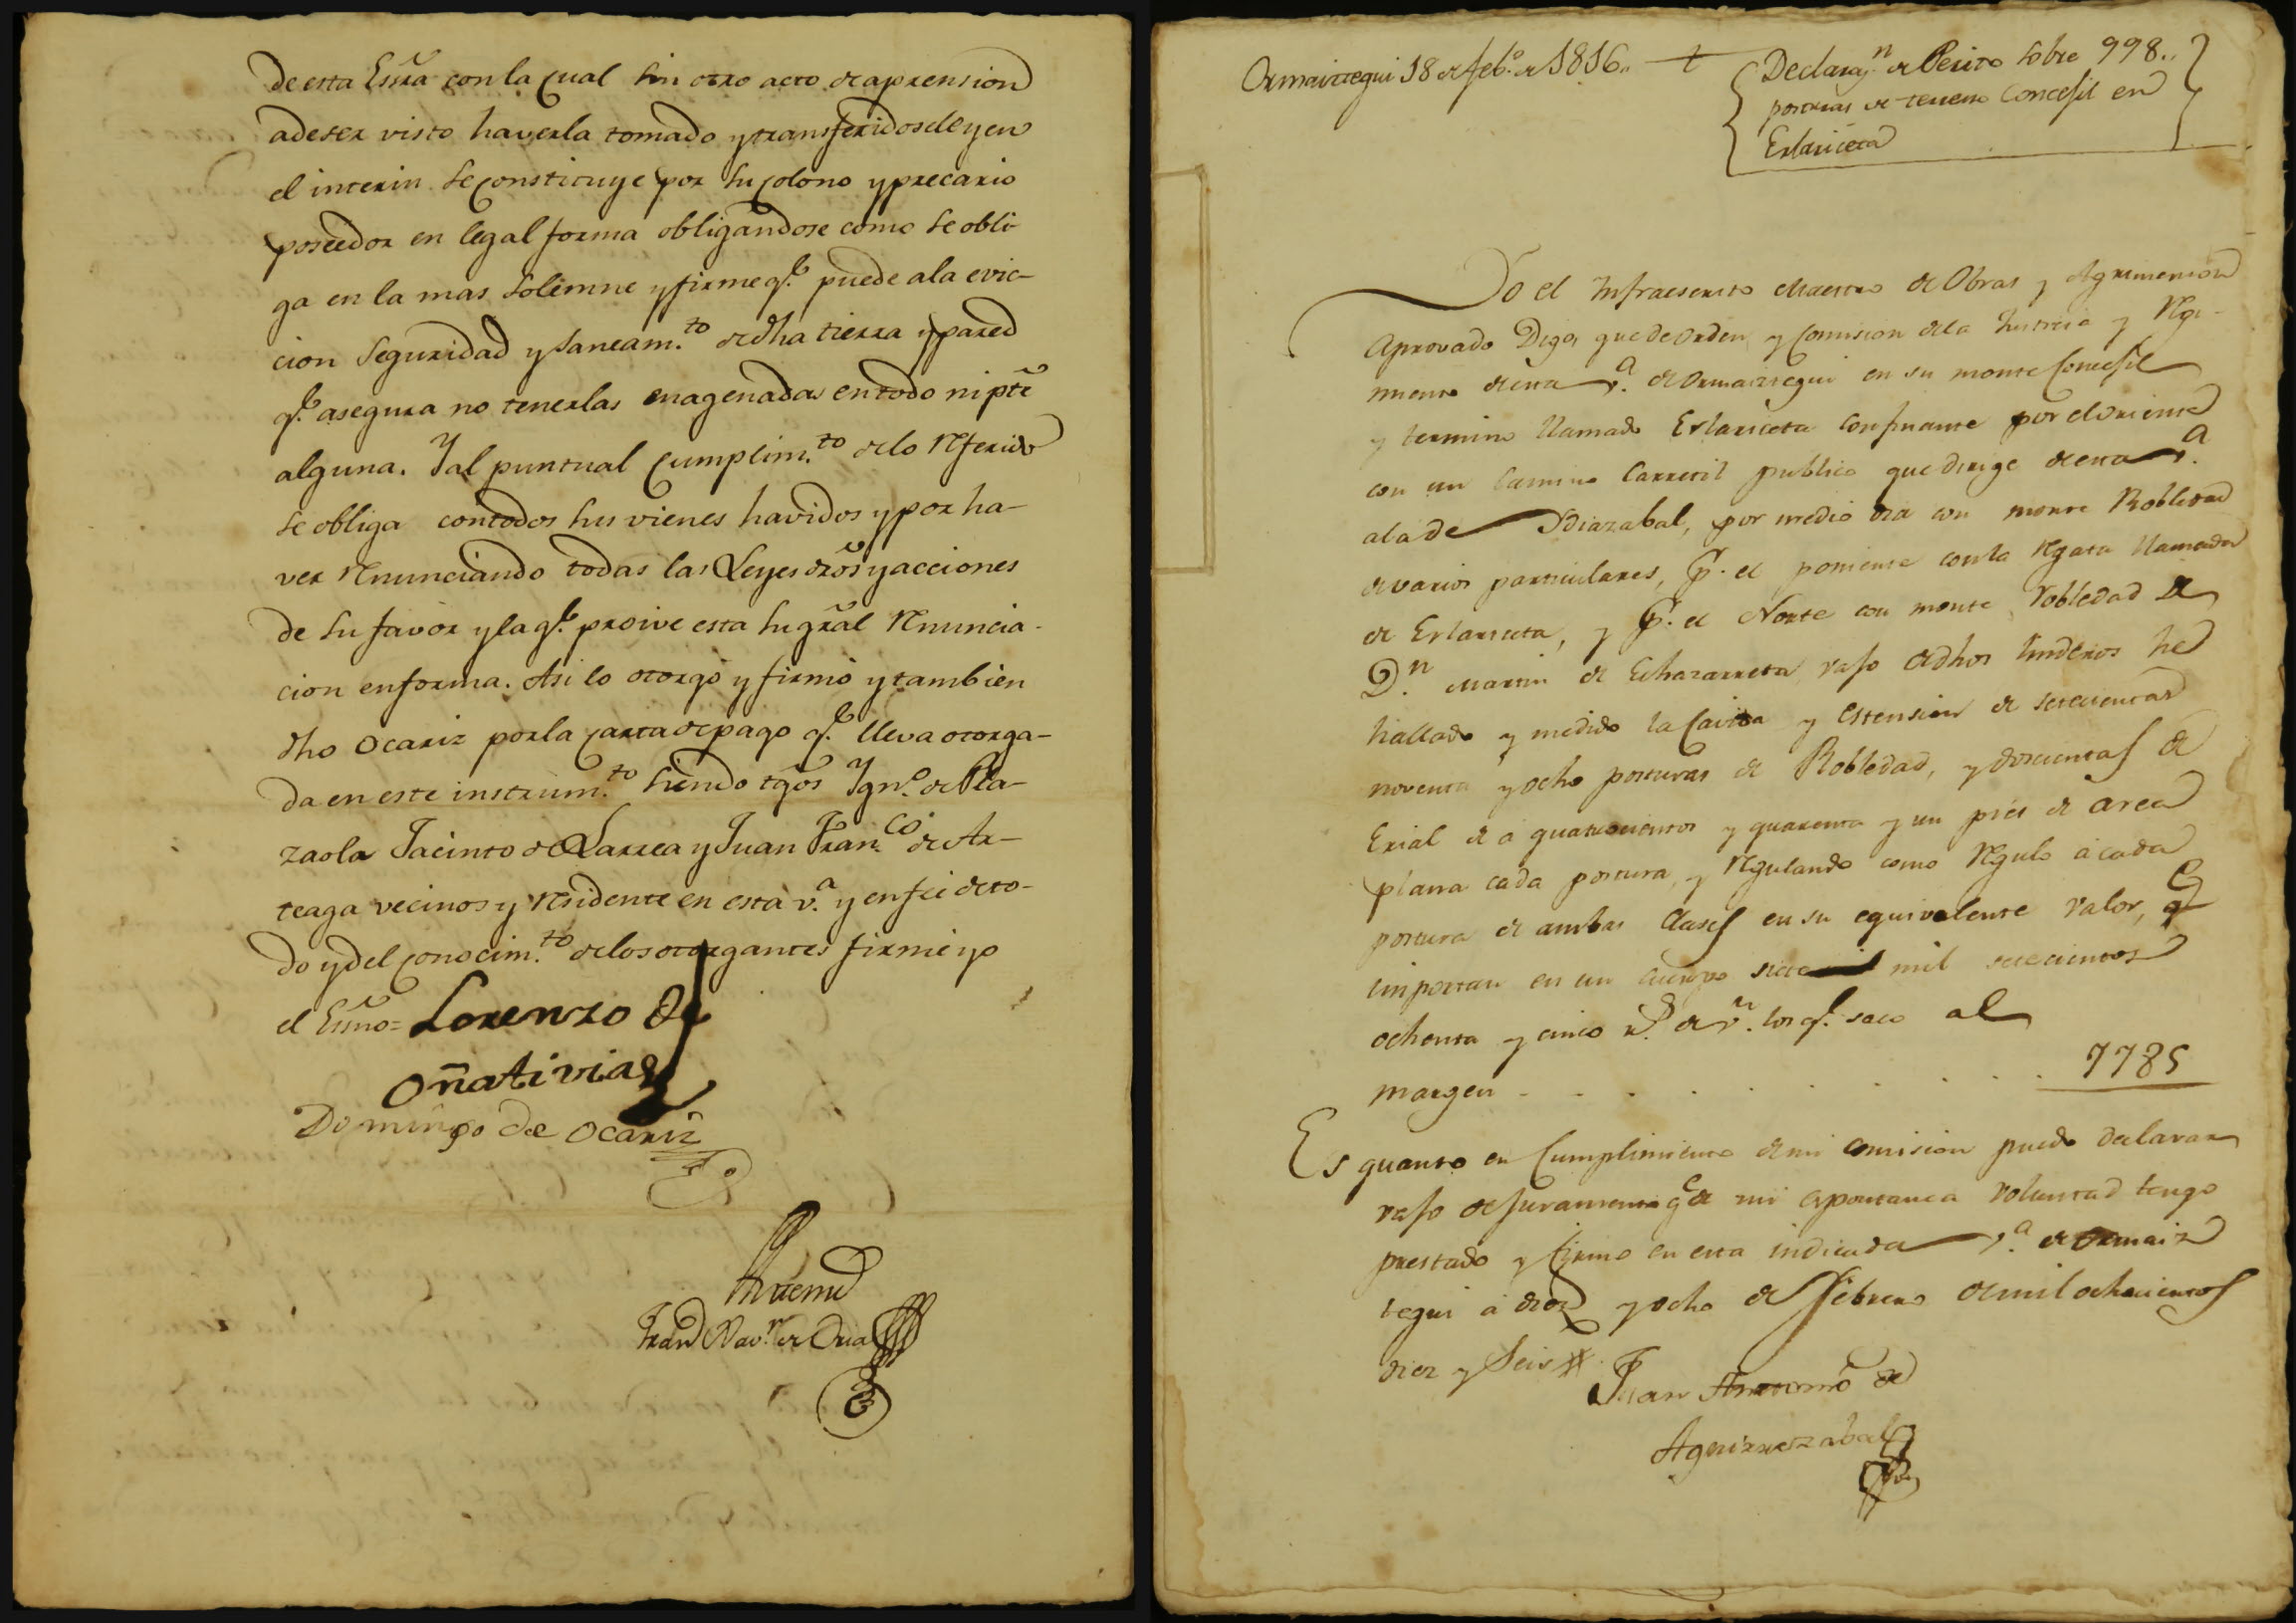 de esta Essra con la qual sin otro acto de aprension
a de ser visto haverla tomado y transferidosele y en
el interin se constituye por su colono y precario
poseedor en legal forma obligandose como se obli-
ga en la mas solemne y firme q.e puede ala evic-
cion seguridad y saneam.to de dha tierra y pared
q.e asegura no tenerlas enagenadas en todo ni pte
alguna. Y al puntual cumplim.to de lo referido
se obliga con todos sus vienes havidos y por ha-
ver renunciando todas las Leyes dros y acciones
de su favor y la q.e proive esta su gral renuncia-
cion en forma. Asi lo otorgó y firmó y tambien
dho Ocariz por la carta de pago q.e lleva otorga-
da en este instrum.to siendo tgos Ygn.o de Pla-
zaola Jacinto de Larrea y Juan Fran.co de Ar-
teaga vecinos y residente en esta v.a y en fee de to-
do y del conocim.to de los otorgantes firmé yo
el Essno= Lorenzo de
Oñativia
Domingo de Ocariz
Ante mi
Fran.co Xav.r de Oria
Ormaiztegui 18 de feb.o de 1816..
Declarac.n de Perito sobre 998..
posturas de terreno Concejil en
Erlarizeta
Yo el Infraescrito Maestro de Obras y Agrimensor
Aprovado Digo, que de orden y comision de la Justicia y Regi-
miento de esta v.a de Ormaiztegui en su monte Concejil
y termino llamado Erlarizeta confinante por el oriente
con un camino carretil publico que dirige de esta v.a
a la de Ydiazabal, por medio dia con monte Robledad
de varios particulares, p.r el poniente con la regata llamada
de Erlarizeta, y p.r el Norte con monte robledad de
D.n Martin de Echazarreta, vajo de dhos linderos he
hallado y medido la cavida y estension de setecientas
noventa y ocho posturas de Robledad, y doscientas de
Erial de á quatrocientos y quarenta y un pies de area
plana cada postura, y regulando como regulo á cada
postura de ambas clases en su equivalente valor,
importan en un cuerpo siete mil setecientos
ochenta y cinco r.s de v.n los q.e saco al
margen . . . . . . . . . 7785
Es quanto en cumplimiento de mi comision puedo declarar
vajo de juramento q.e de mi espontanea voluntad tengo
prestado y firmo en esta indicada v.a de Ormaiz
tegui á diez y ocho de Febrero de mil ochocientos
diez y seis
Juan Antonio de
Aguirrezabal